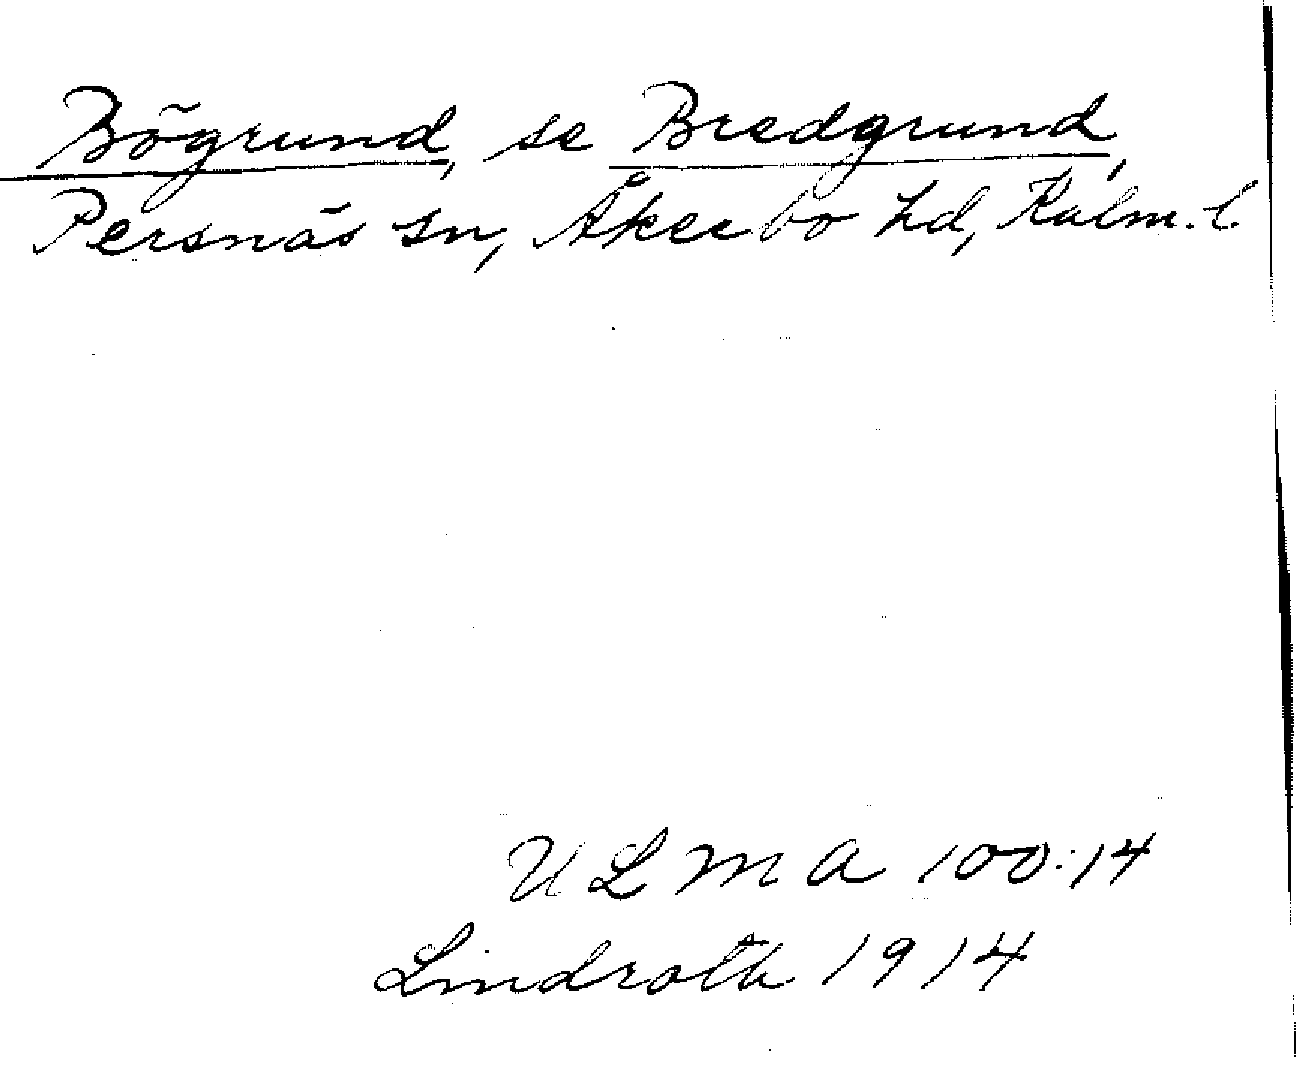 Bögrund, se Bredgrund,
Persnäs sn, Åkerbo hd, Kalm. l.
ULMA 100:14
Lindroth 1914